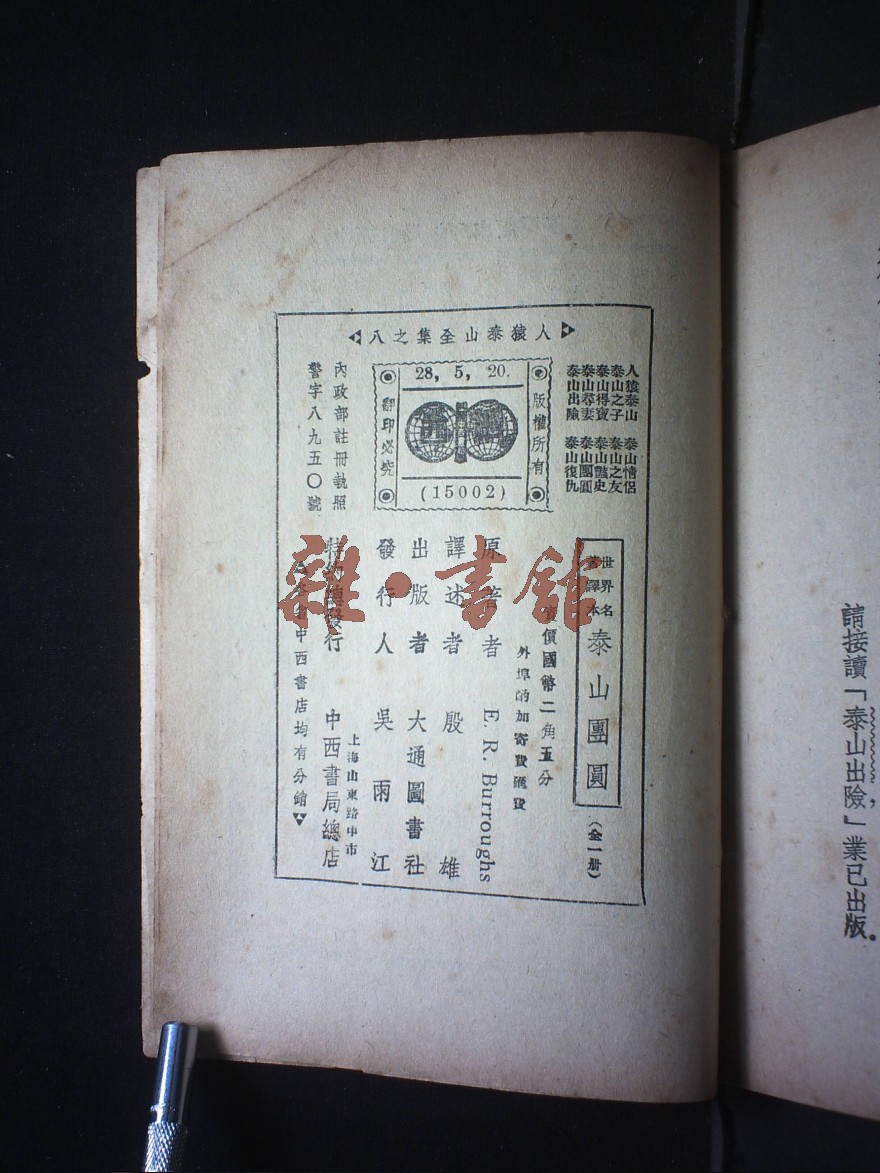 人猿泰山全集之八
人猿泰山 泰山情侶
泰山之子 泰山之友
泰山得寶 泰山豔史
泰山尋妻 泰山團圓
泰山出險 泰山復仇
28, 5, 20.
版權所有
翻印必究
(15002)
內政部註冊執照
警字八九五〇號
世界名
著譯本
泰山團圓
(全一册)
實價國幣二角五分
外埠酌加寄費匯費
原著者 E. R. Burroughs
譯述者 殷雄
出版者 大通圖書社
發行人 吳雨江
特約總發行 上海山東路中市
中西書局總店
各省中西書店均有分銷
請接讀「泰山出險」業已出版.
雜·書館